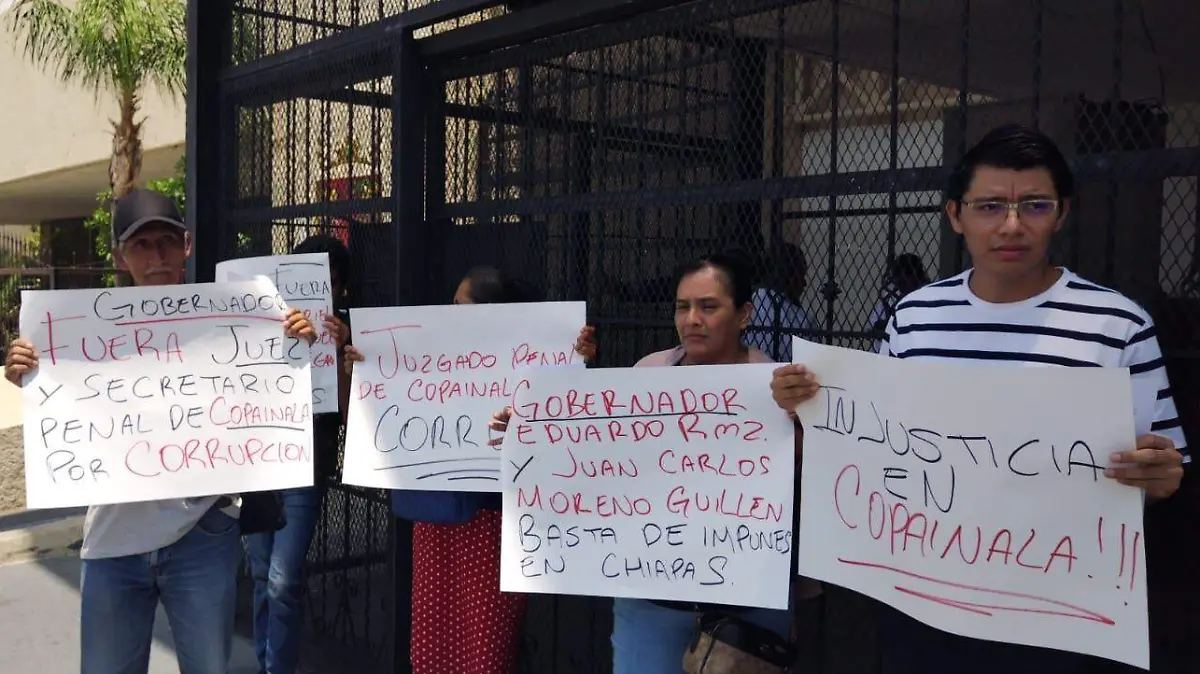 GOBERNADOR
FUERA JUEZ
Y SECRETARIO
PENAL DE COPAINALA
POR CORRUPCION
FUERA
JUZGADO PENAL
DE COPAINAL
CORR
GOBERNADOR
EDUARDO RMZ.
Y JUAN CARLOS
MORENO GUILLEN
BASTA DE IMPUNES
EN CHIAPAS.
INJUSTICIA
EN
COPAINALA.!!!